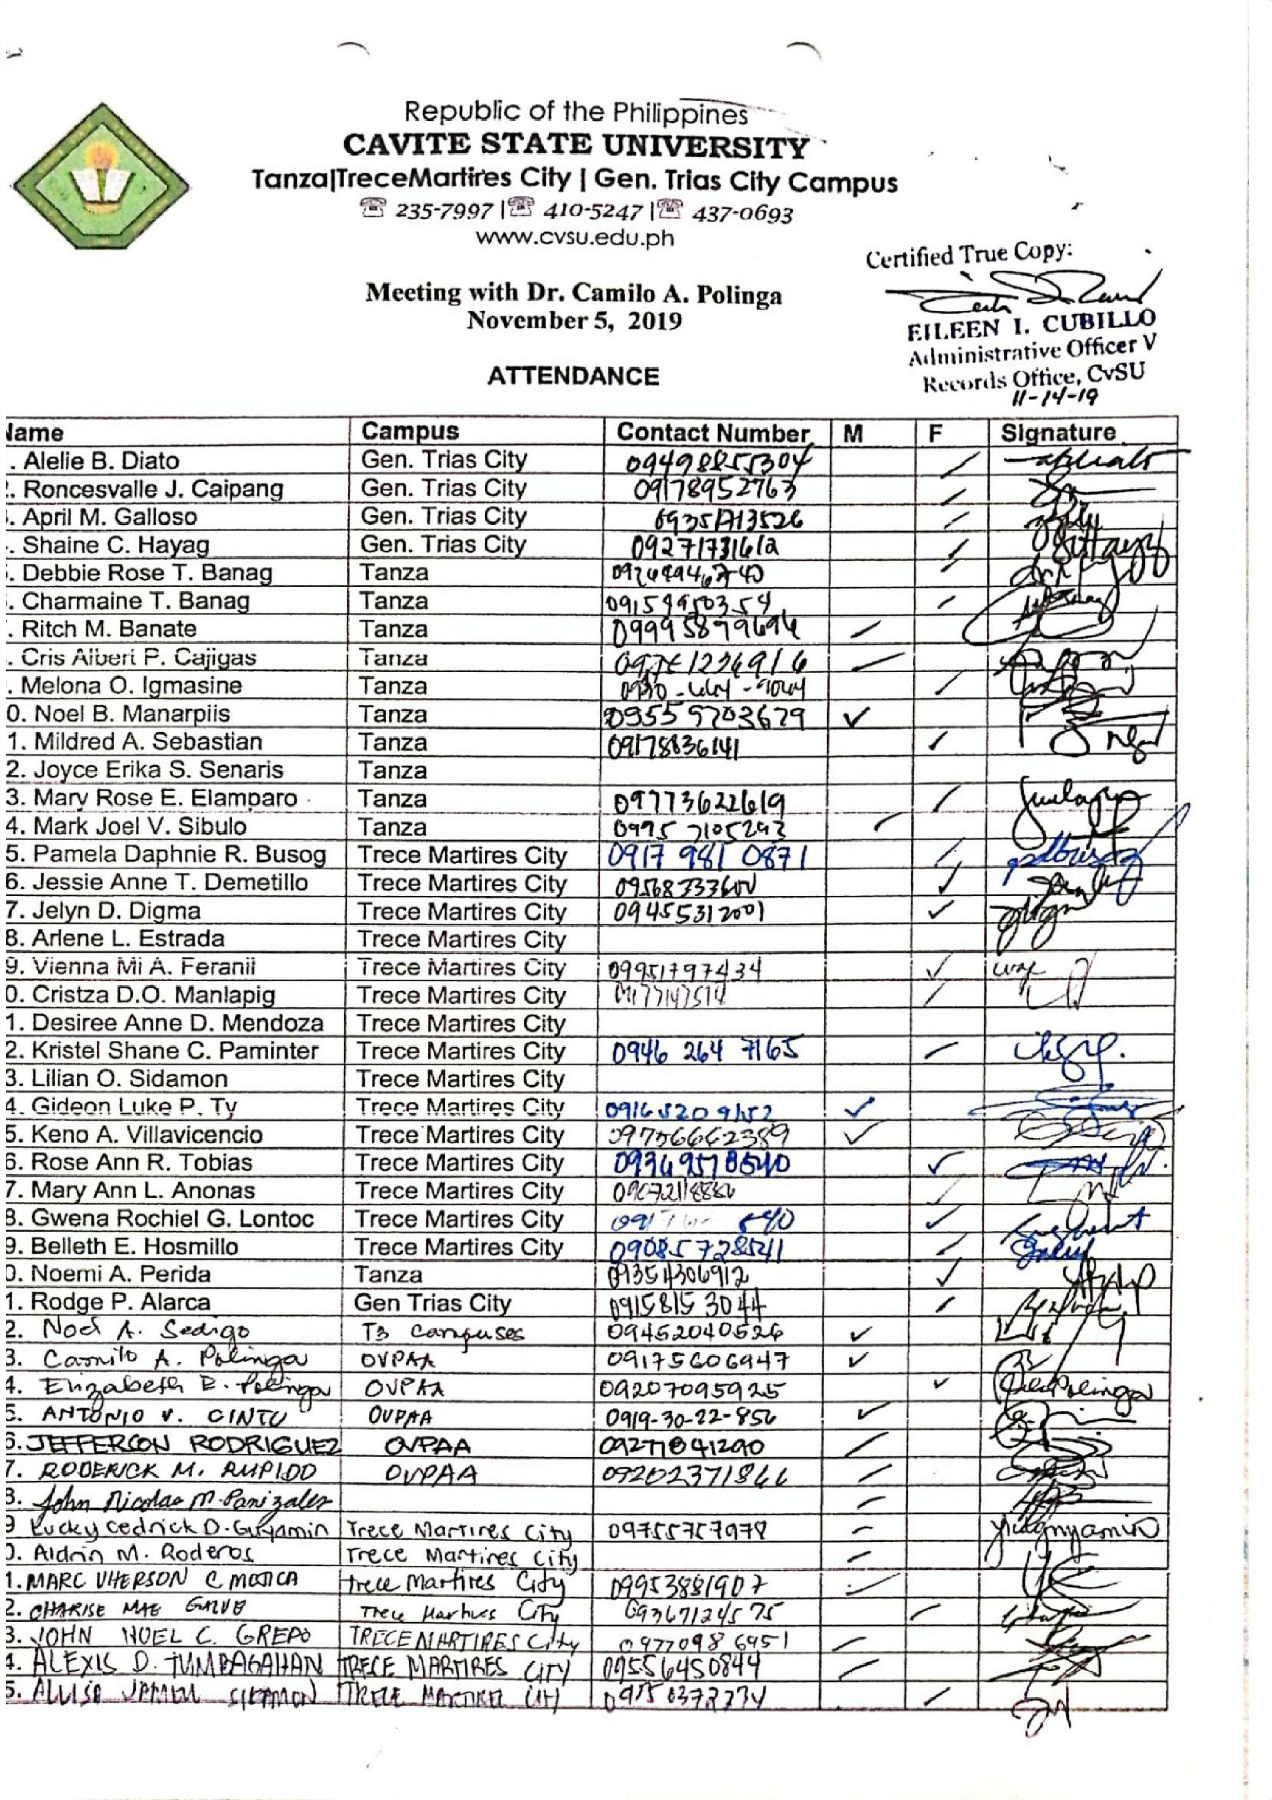 Republic of the Philippines
CAVITE STATE UNIVERSITY
Tanza|TreceMartires City | Gen. Trias City Campus
☏ 235-7997 |☏ 410-5247 |☏ 437-0693
www.cvsu.edu.ph
Certified True Copy:
EILEEN I. CUBILLO
Administrative Officer V
Records Office, CvSU
11-14-19
Meeting with Dr. Camilo A. Polinga
November 5, 2019
ATTENDANCE
Name Campus Contact Number M F Signature
. Alelie B. Diato Gen. Trias City 09498855304
. Roncesvalle J. Caipang Gen. Trias City 09178952763
. April M. Galloso Gen. Trias City
. Shaine C. Hayag Gen. Trias City
. Debbie Rose T. Banag Tanza
. Charmaine T. Banag Tanza
. Ritch M. Banate Tanza
. Cris Albert P. Cajigas Tanza
. Melona O. Igmasine Tanza
0. Noel B. Manarpiis Tanza 09559703679 ✓
1. Mildred A. Sebastian Tanza 09178836141 ✓
2. Joyce Erika S. Senaris Tanza
3. Mary Rose E. Elamparo Tanza 09773622619
4. Mark Joel V. Sibulo Tanza 0995 7105293
5. Pamela Daphnie R. Busog Trece Martires City 0917 981 0871
6. Jessie Anne T. Demetillo Trece Martires City ✓
7. Jelyn D. Digma Trece Martires City 09455312001 ✓
8. Arlene L. Estrada Trece Martires City
9. Vienna Mi A. Feranil Trece Martires City 09951797434 ✓
0. Cristza D.O. Manlapig Trece Martires City
1. Desiree Anne D. Mendoza Trece Martires City
2. Kristel Shane C. Paminter Trece Martires City 0946 264 7165
3. Lilian O. Sidamon Trece Martires City
4. Gideon Luke P. Ty Trece Martires City ✓
5. Keno A. Villavicencio Trece Martires City 09756662389 ✓
6. Rose Ann R. Tobias Trece Martires City 09369578540 ✓
7. Mary Ann L. Anonas Trece Martires City
8. Gwena Rochiel G. Lontoc Trece Martires City ✓
9. Belleth E. Hosmillo Trece Martires City 09085728541 ✓
0. Noemi A. Perida Tanza 09354306912 ✓
1. Rodge P. Alarca Gen Trias City 0915815 3044
2. Noel A. Sedigo T3 Campuses 09452040526 ✓
3. Camilo A. Polinga OVPAA 09175606947 ✓
4. Elizabeth E. Polinga OVPAA 09207095925 ✓
5. ANTONIO V. CINTU OVPAA 0919-30-22-856 ✓
6. JEFFERSON RODRIGUEZ OVPAA 09271841290
7. RODERICK M. RUPIDO OVPAA 09202371866
8. John Nicolas M. Panizales
9 Lucky Cedrick D. Guyamin Trece Martires City 09755757978
0. Aldrin M. Roderos Trece Martires City
1. MARC VHERSON C. MOJICA Trece Martires City 09953881907
2. CHARISE MAE Trece Martires City 09367124575
3. JOHN NOEL C. GREPO TRECE MARTIRES City 0977098 6951
4. ALEXIS D. TUMBAGAHAN TRECE MARTIRES CITY 09556450844
5. TRECE MARTIRES CITY